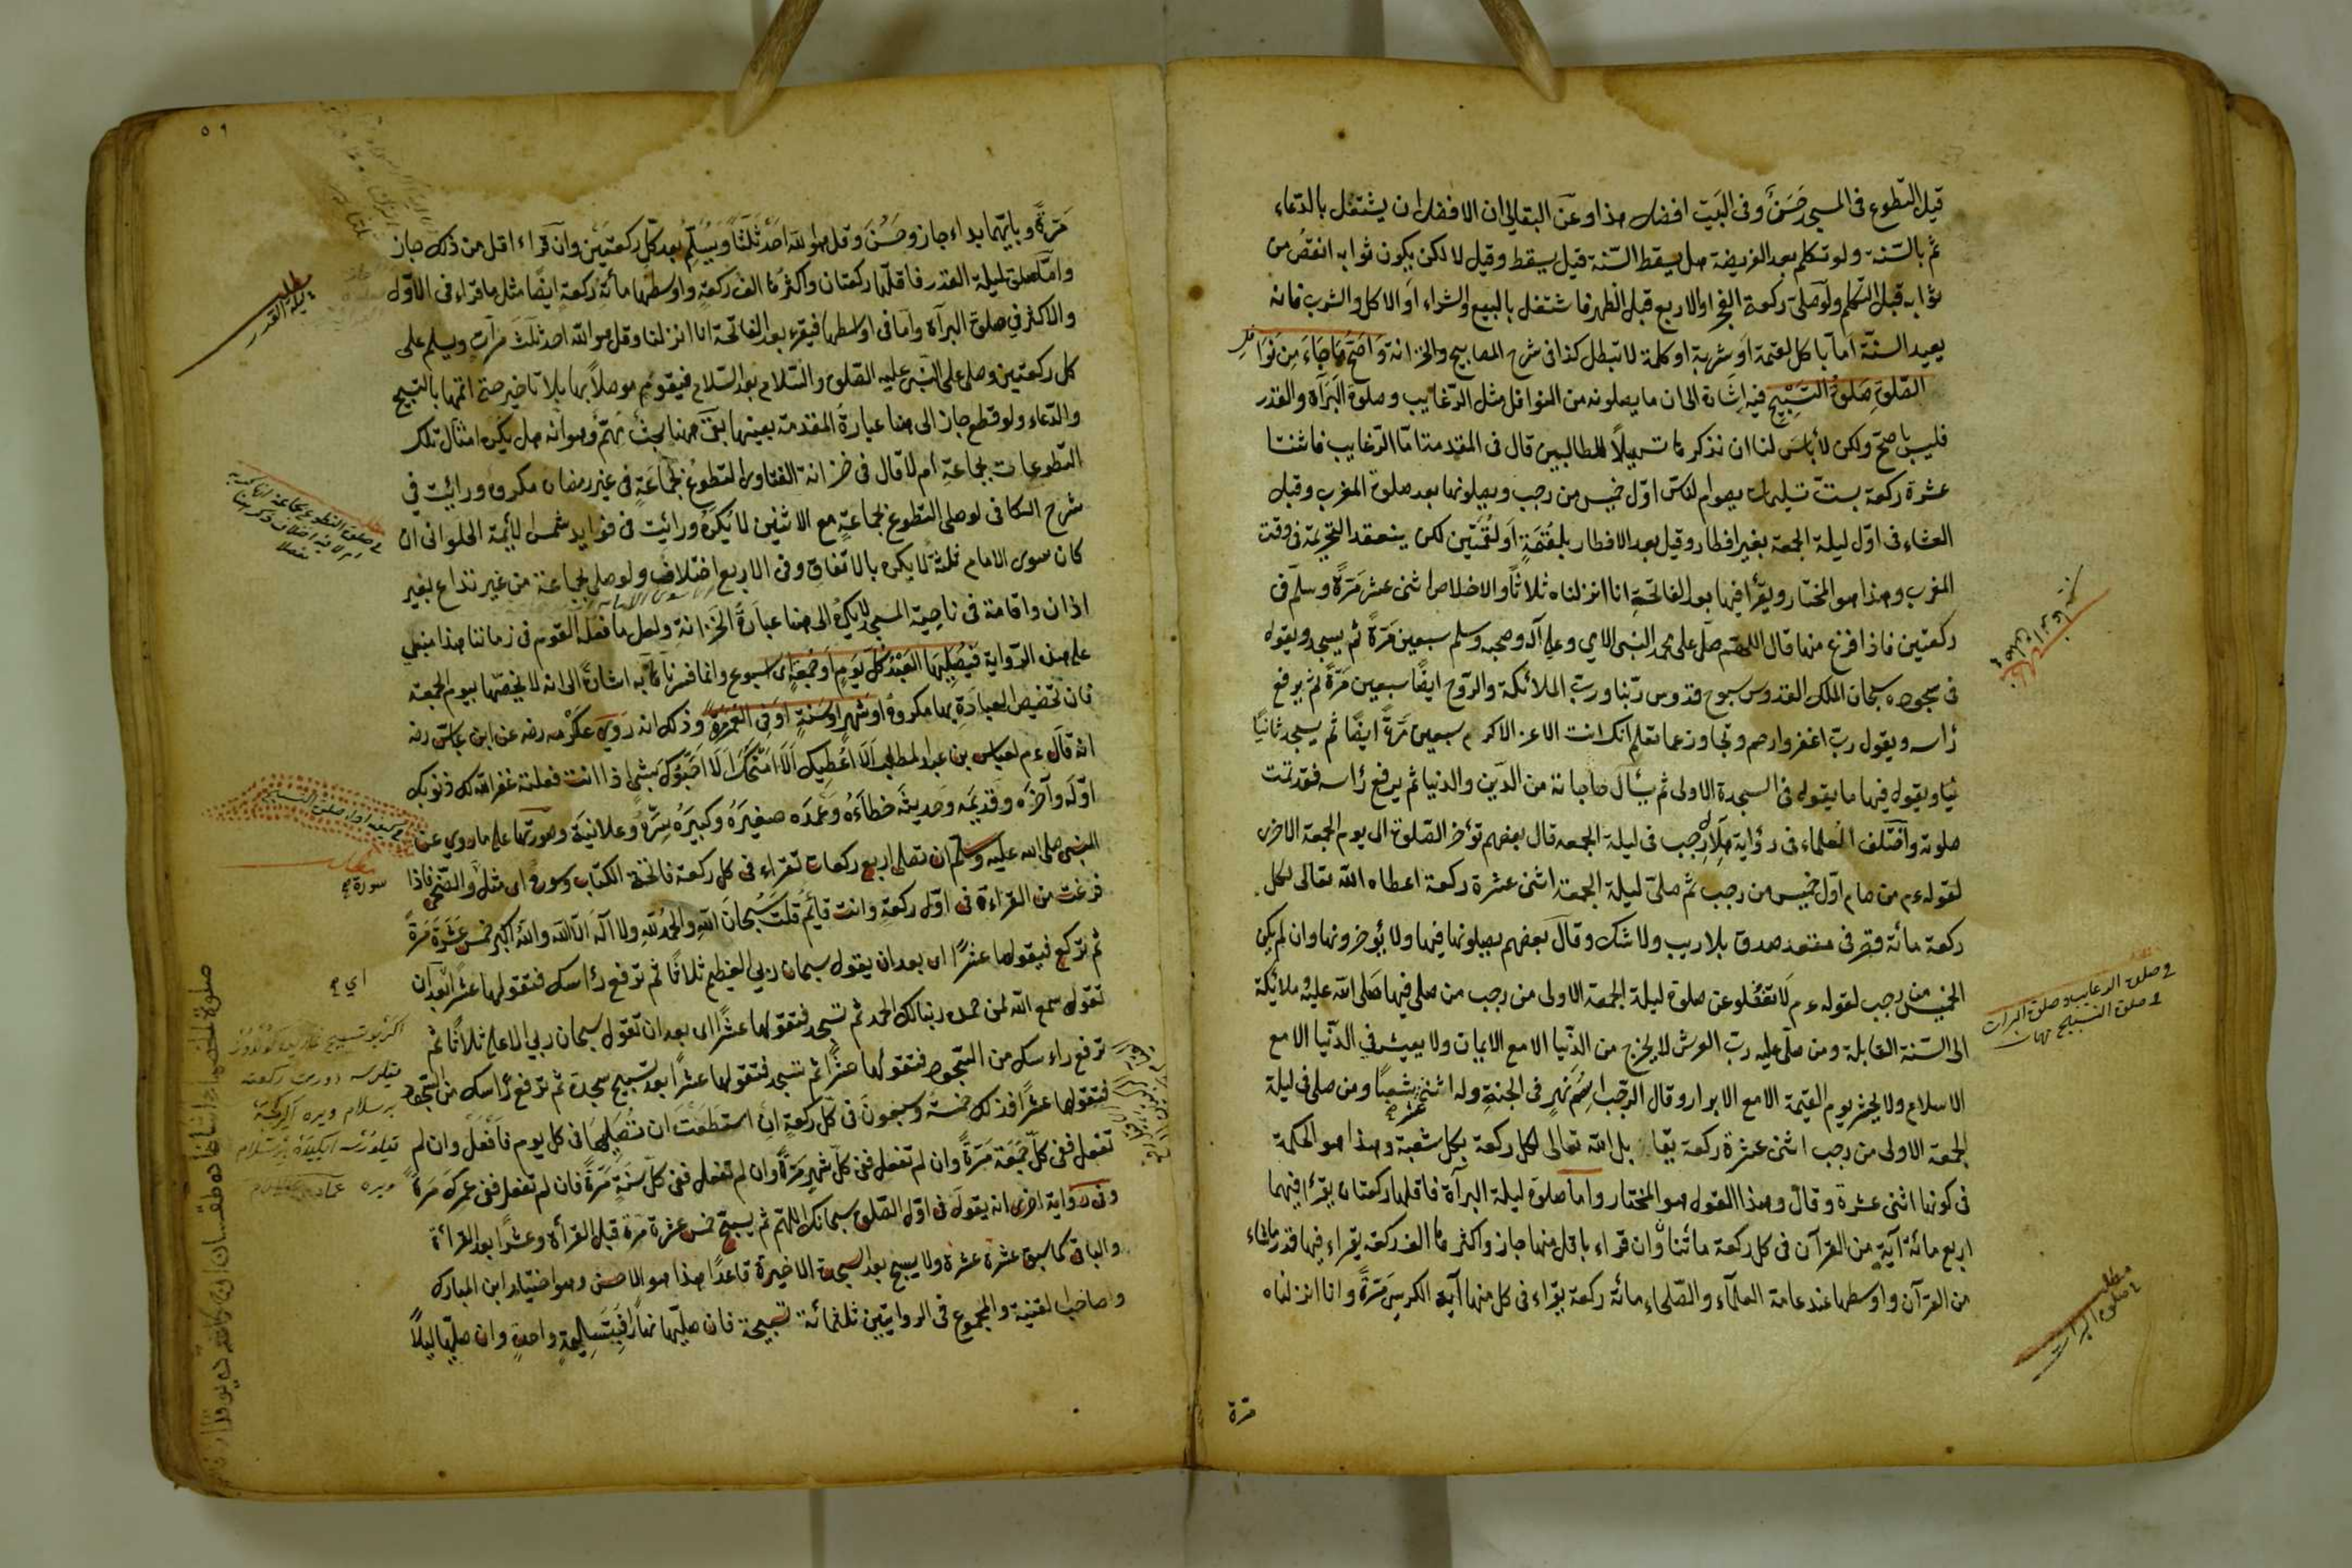 قيل التطوع فى المسجد حَسَنٌ وفى البَيت افضل هذا وعن البقالى ان الافضل ان يشتغل بالدّعاء
ثم بالسّنة ولو تكلم بعد الفريضة هل يسقط السّنة قيل يسقط وقيل لا لكن يكون ثوابه انقصُ من
ثوابه قبل التكلم ولو صلى ركعة الفجر او الاربع قبل الظهر فاشتغل بالبيع والشراء او الاكل والشرب فانه
يعيد السنّة اما باكل لقمة او شربة او كلمة لا تبطل كذا فى شرح المصابيح والخزانة وَاَصَحّ مَا جَاءَ مِن نَوَافِلِ
الصّلوةِ صَلوةُ التسْبِيح فيه اِشَارة الى ان ما يصلونه من النوافل مثل الرّغايب وصلوة البَرَآة والقدر
فليس باصحّ ولكن لا بأسَ لنا ان نذكرها تسهيلاً للطالبين قال فى المقدمة امّا الرّغايب فاثنتا
عشرة ركعة بستّ تسليمات يصوام الناس اوّل خميس من رجب ويصلونها بعد صلوة المغرب وقبل
العشاء فى اوّل ليلة الجمعة بغير افطار وقيل بعد الافطار بلُقْمَةٍ اَو لُقْمَتَين لكن ينعقد التحريمة فى وقت
المغرب وهذا هو المختار ويقرأ فيها بعد الفاتحةِ انا انزلناه ثلاثاً والاخلاص اثنى عشر مَرّةً وسلّم فى
ركعتين فاذا فرغ منها قال اللهمّ صلّ على محمد النبى الامى وعلى آله وصحبه وسلم سبعين مَرّةً ثم يسجد ويقول
فى سجوده سبحان الملك القدوس سبوح قدوس ربّنا وربّ الملائكة والرّوح ايضًا سبعين مَرّةً ثم يرفع
رأسه ويقول ربّ اغفر وارحم وتجاوز عما تعلم انك انت الاعز الاكرم سبعين مَرّةً ايضًا ثم يسجد ثانيًا
ويقول فيها ما يقول فى السجدة الاولى ثم يسأل حاجاته من الدّين والدنيا ثم يرفع رأسه فقد تمت
صلوته واختلف العلماء فى رؤاية هِلَال رجب فى ليلة الجمعه قال بعضهم تؤخر الصّلوة الى يوم الجمعة الاخرى
لقوله ءم من صام اوّل خميس من رجب ثم صلّى ليلة الجمعة اثنى عشرة ركعة اعطاه الله تعالى بكل
ركعة مائة قصر فى مقعد صدق بلا ريب ولا شك وقال بعضهم يصلونها فيها ولا يؤخرونها وان لم يكن
الخميس من رجب لقوله ءم لا تغفلو عن صلوة ليلة الجمعة الاولى من رجب من صلى فيها صَلى الله عليه وملائكة
الى السّنة القابلة ومن صلّى عليه ربّ العرش لا يخرج من الدّنيا الا مع الايمان ولا يعيش فى الدّنيا الا مع
الاسلام ولا يحشر يوم القيمة الا مع الابرار وقال الرّجب اِسْمُ نَهرٍ فى الجنةِ وله اثنى عشر شعبًا ومن صلى فى ليلة
الجمعة الاولى من رجب اثنى عشرة ركعة يقابل الله تعالى لكل ركعة بكل شعبة وهذا هو الحكمة
فى كونها اثنى عشرة وقال وهذا القول هو المختار واما صلوة ليلة البرآة فاقلها ركعتان يقرأ فيهما
اربع مائة آية من القرآن فى كل ركعة مائتان وان قراء باقل منها جاز واكثرها الف ركعة يقراء فيها قدر ما شاء
من القرآن واوسطها عند عامة العلمآء والصّلحاء مائة ركعة يقراء فى كل منها آية الكرسى مَرّةً وانا انزلناه
مرة
فى صلوة الرغايب وصلوة البرات
فى صلوة التسبيح
مطلب
فى صلوة البرات
٥٩
مَرّةً وبايّهما بداء جاز وحَسُنَ وقل هو الله احد ثلثًا ويُسَلّمُ بعد كل ركعتين وان قراء اقل من ذلك جاز
وامّا صلوة ليلة القدر فاقلها ركعتان واكثرها الف ركعةٍ واوسطها مائةُ ركعة ايضًا مثل ما قراء فى الاوّل
والاكثر فى صلوة البرآة واما فى اوسطها فيقرء بعد الفاتحة انا انزلنا وقل هو الله احد ثلثَ مَرآت ويسلم على
كل ركعتين وصلى على النّبى عليه الصّلوة والسّلام بعد السّلام فيقوم موصلاً بها بلا تاخير حتى اتمّها بالتسبيح
والدّعاء ولو قطع جاز الى هنا عبارة المقدمة بعينها بقى ههنا بحثٌ مُهمٌّ وهو انه هل يكره امثال تلك
التطوعات بجماعةٍ ام لا قال فى خزانة الفتاوى التطوعُ بجماعَةٍ فى غير رمضان مكروه ورأيت فى
شرح الكافى لو صلى التطوع بجماعةٍ مع الاثنين لا يُكرهُ ورأيت فى فوايد شمس الايمّة الحلوانى ان
كان سوى الامام ثلثة لا يكره بالاتفاق وفى الاربع اختلاف ولو صلى بجماعة من غير تداع بغير
اذان واقامة فى ناحية المسجد لا يكره الى هنا عبارَة الخزَانةِ ولعل ما فعله القوم فى زماننا هذا مبنى
على هذه الرّواية فَيُصَلِّيهَا العَبْدُ كُلّ يَومٍ اَو جُمُعَةٍ اى اسبوع وانما فسّرنا به اشارةً الى انه لا يخصّها بيوم الجمعة
فان تخصيص العبادَةِ بها مكروهُ اَو شَهرٍ اَو سَنَةٍ اَو فِى العُمُرِ مَرّةً وذلك انه رَوى عِكْرمه رضه عن ابن عباس رضه
انّه قال ءم لعباس بن عبد المطلب اَلَا اُعْطِيكَ اَلَا اَمْنَحُكَ اَلَا اَحْبُوكَ بشىءٍ اذا انت فعلته غفر الله لك ذنوبك
اوّلَه وآخرَه وقَديمَه وحَديثَه خطاءَهُ وعَمْدَه صغيرَهُ وكَبيرَهُ سِرّهُ وعلانيَتَه وصورتها على ما روى عن
النبى صلى الله عليه وسلم ان تصلى اربع ركعات تقراء فى كل ركعة فاتحة الكتاب وسورة اى مثل والضّحى فاذا
فرغت من القراءة فى اوّل ركعةٍ وانت قائمُ قلت سُبحانَ اللهِ والحمدُ للهِ ولا اله الّا الله والله اكبر خمس عَشَرَةَ مَرّةً
ثم تركع فيقولها عشرًا اى بعد ان يقول سبحان ربى العظيم ثلاثًا ثم ترفع رأسك فتقولها عشرًا بعد ان
تقول سمع الله لمن حمده ربنا لك الحمد ثم تسجد فتقولها عشرًا اى بعد ان تقول سبحان ربى الاعلى ثلاثًا ثم
ترفع راءسك من السّجود فتقولها عشرًا ثم تسجد فتقولها عشرًا بعد تسبيح سجدة ثم ترفع رأسك من السّجود
فتقولها عشرًا فذلك خمسَةٌ وسبعونَ فى كل ركعةٍ اِنْ استطعْتَ ان تُصَلِيَهَا فى كل يوم فافعَلْ وان لم
تفعل ففى كلّ جُمُعَة مَرّةً وان لم تفعل ففى كلّ شَهرٍ مَرّةً وان لم تفعل ففى كلّ سَنَةٍ مَرّةً فان لم تفعل ففى عمرك مَرّةً
وفى رواية اخرى انه يقول فى اوّل الصّلوة سبحانك اللهمّ ثم يسبّح خمس عشرة مَرّة قبل القرأة وعشرًا بعد القرأة
والباقى كما سبق عشرة عشرة ولا يسبح بعد السجدة الاخيرة قاعدًا هذا هو الاحسن وهو اختيار ابن المبارك
وصاحب القنية والمجموع فى الروايتين ثلثمائة تسبيحة فان صليّها نهارًا فبتَسِليمةٍ واحدةٍ وان صليّها ليلاً
مطلب
ليلة القدر
فى صلوة التطوع بجماعة
سورة
اى